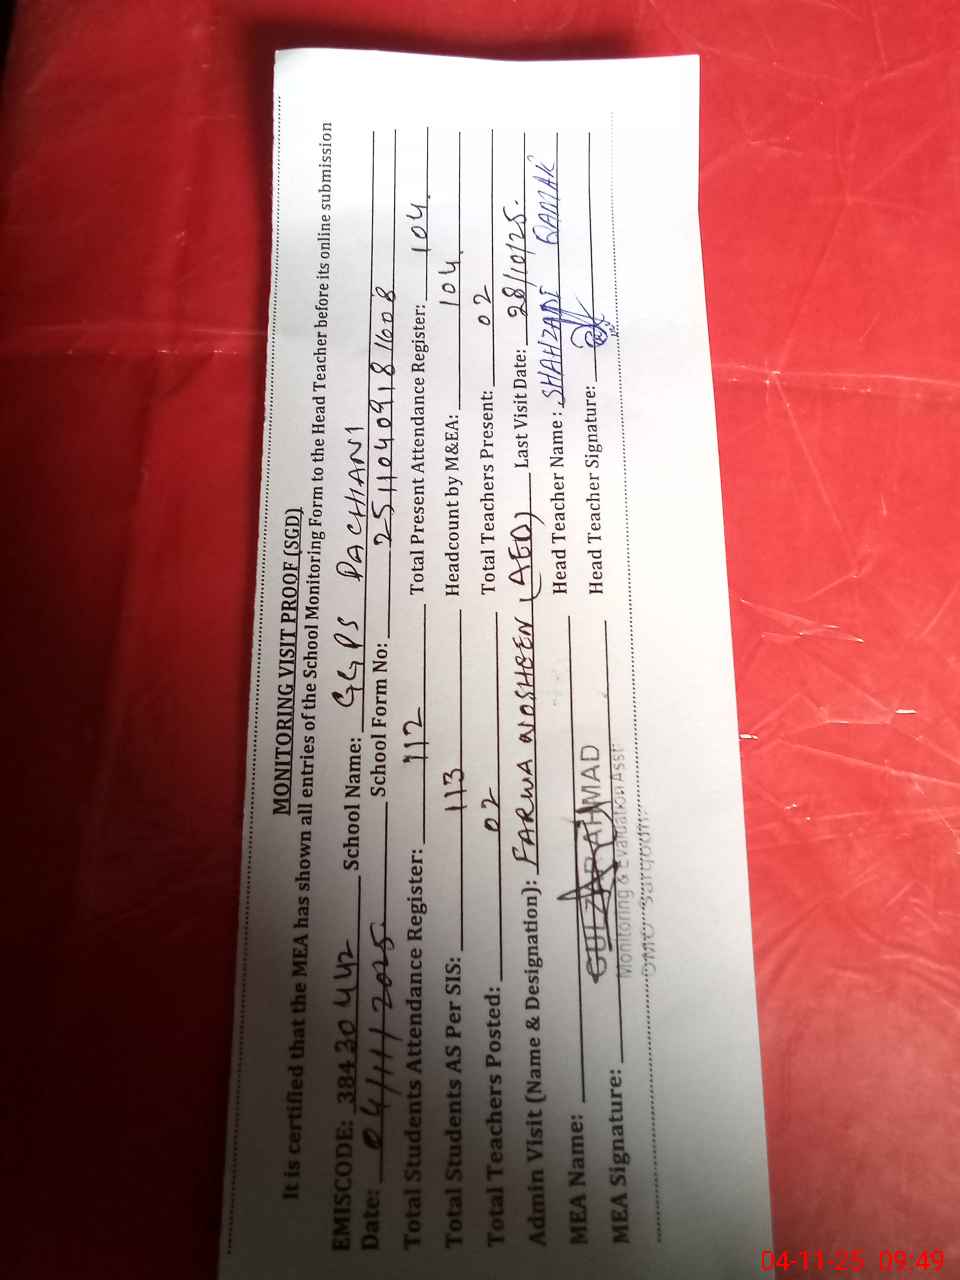 MONITORING VISIT PROOF (SGD)
It is certified that the MEA has shown all entries of the School Monitoring Form to the Head Teacher before its online submission
EMISCODE: 38430442 School Name: GGPS PACHIANI
Date: 04/11/2025 School Form No: 25110409181608
Total Students Attendance Register: 112 Total Present Attendance Register: 104.
Total Students AS Per SIS: 113 Headcount by M&EA: 104
Total Teachers Posted: 02 Total Teachers Present: 02
Admin Visit (Name & Designation): FARWA NOSHEEN (AEO) Last Visit Date: 28/10/25.
MEA Name: GULZAR AHMAD Head Teacher Name: SHAHZADI
MEA Signature: Monitoring & Evaluation Asst: Head Teacher Signature:
04-11-25 09:49